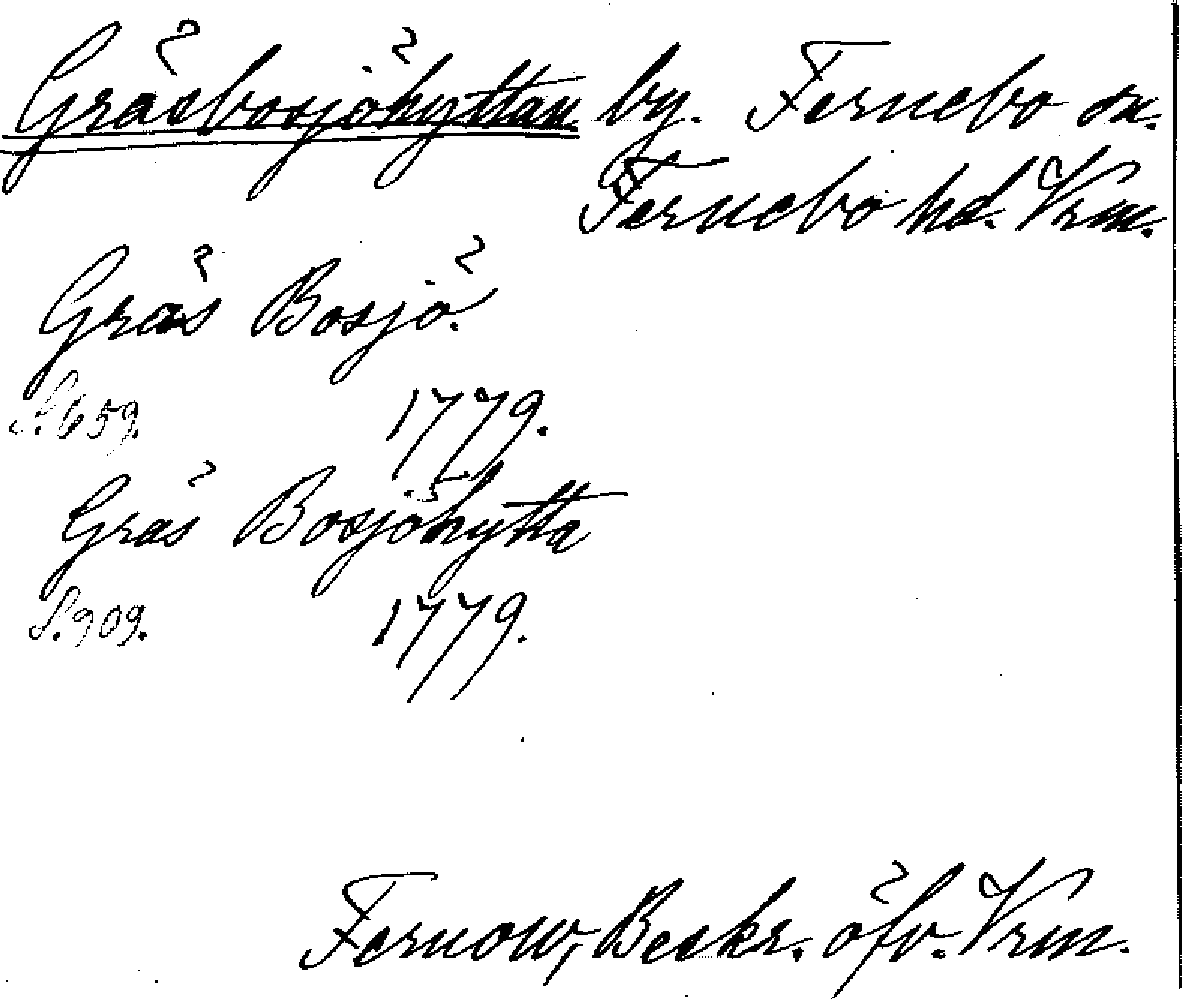 Gräsbosjöhyttan by. Fernebo sn.
Fernebo hd. Vrm.
Gräs Bosjö.
S. 659. 1779.
Gräs Bosjöhytta
S. 909. 1779.
Fernow, Beskr. öfv. Vrm.